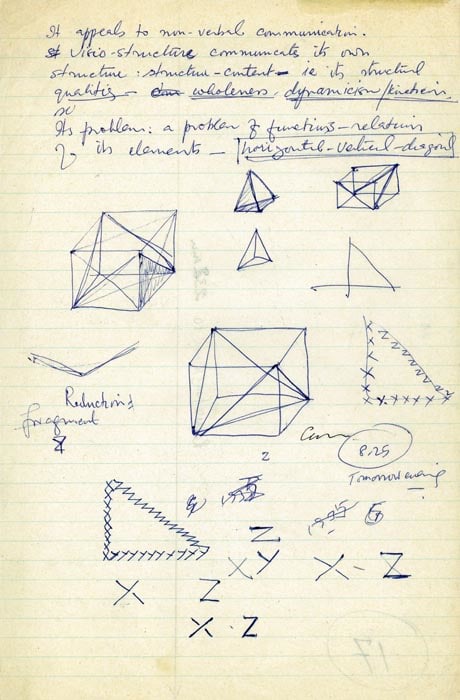 It appeals to non-verbal communication.
Visio-structure communicates its own
structure: structure-content – ie its structural
qualities – wholeness, dynamicism/kineticism.
Its problem: a problem of functions-relations
of its elements – horizontal-vertical-diagonal
Reduction
fragment
Z
8.25
Z
Tomorrow evening
6
Z
X Y
X - Z
X Z
X . Z
17